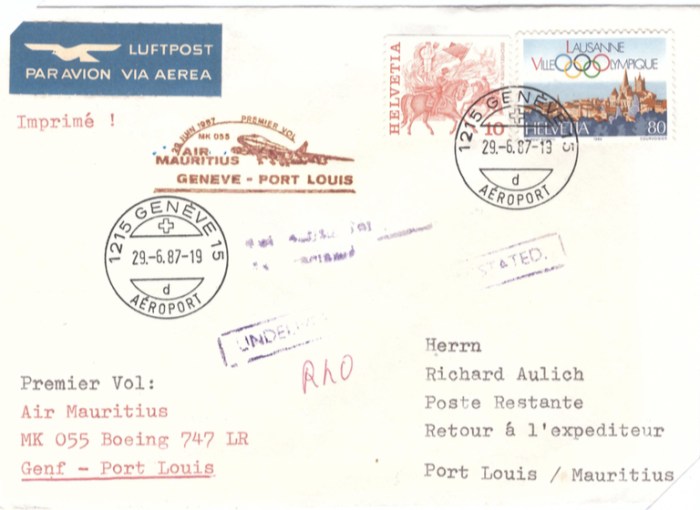 LUFTPOST
PAR AVION VIA AEREA
Imprimé !
HELVETIA
10
LAUSANNE
VILLE OLYMPIQUE
HELVETIA 80
JUIN 1987 PREMIER VOL
MK 055
AIR
MAURITIUS
GENEVE - PORT LOUIS
1215 GENÈVE 15
29.-6.87-19
d
AÉROPORT
1215 GENÈVE 15
29.-6.87-19
d
AÉROPORT
STATED.
Premier Vol:
Air Mauritius
MK 055 Boeing 747 LR
Genf - Port Louis
Herrn
Richard Aulich
Poste Restante
Retour á l'expediteur
Port Louis / Mauritius